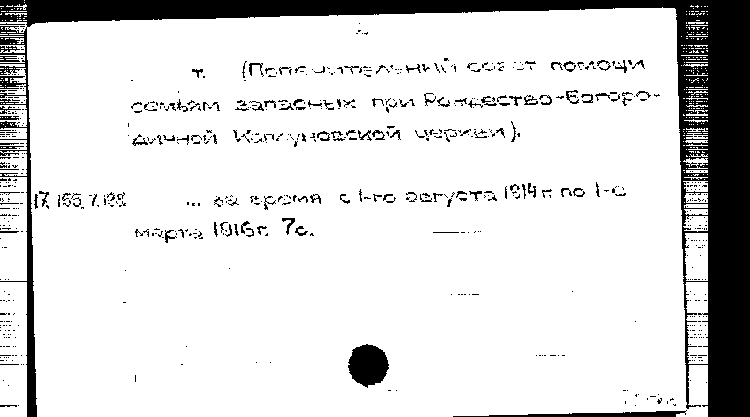 2
т. (Попечительный совет помощи
семьям запасных при Рождество-Богоро-
дичной Каплуновской церкви).
17.155.7.128 ... за время с 1-го августа 1914 г. по 1-е
марта 1916 г. 7с.